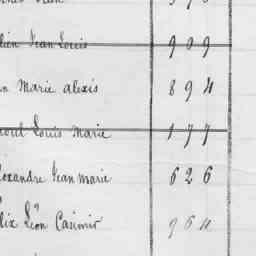 Jean Louis 909
Marie alexis 894
Louis Marie 177
exandre Jean marie 626
lix Léon Casimir 964